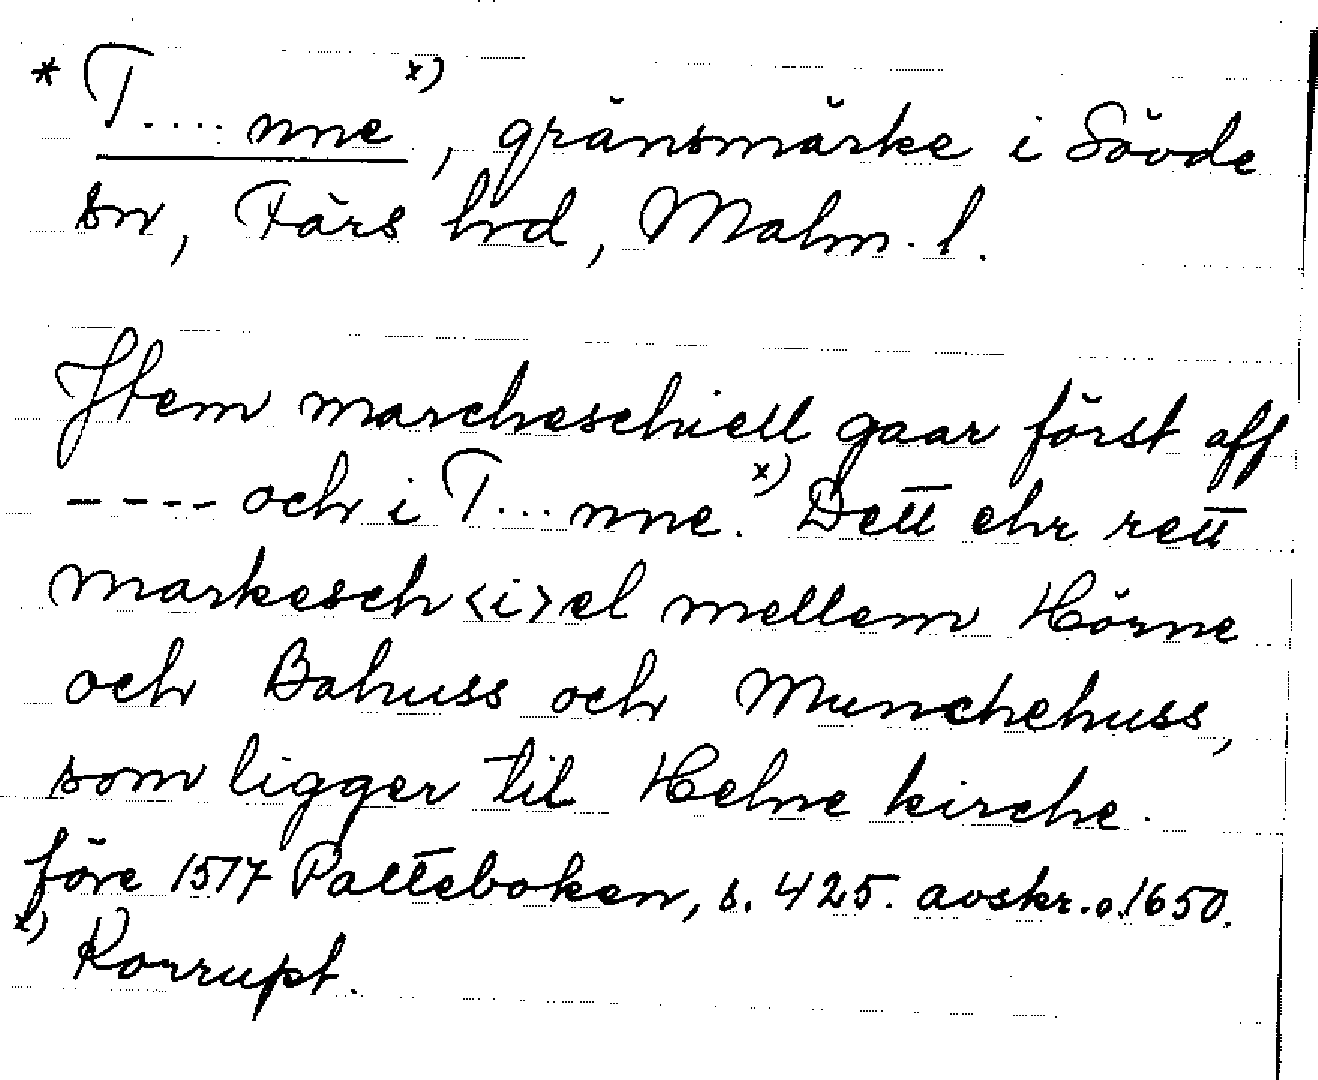 * T....nne x), gränsmärke i Sövde
sn, Färs hrd, Malm. l.
Jtem marcheschiell gaar först aff
---- och i T...nne. x) Dett ehr rett
markesch<i>el mellem Hörne
och Bahuss och Munchehuss,
som ligger til Helne kirche.
före 1517 Palteboken, s. 425. avskr. o. 1650.
x) Korrupt.